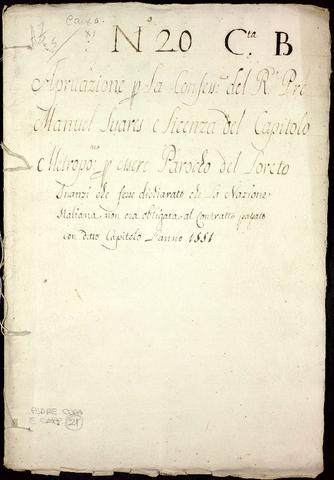 Caixa
XI
Nº 20 Cta B
Apruazione p la Confess.e del R.o Pre
Manuel Suares e licenza del Capitolo
Metropo.no p essere Parocho del Loreto
Inanzi che fosse dichiarato che la Nazione
Italiana non era obligata al Contratto pasato
con ditto Capitolo l'anno 1551
PADRE CURA
E CAPP. 21